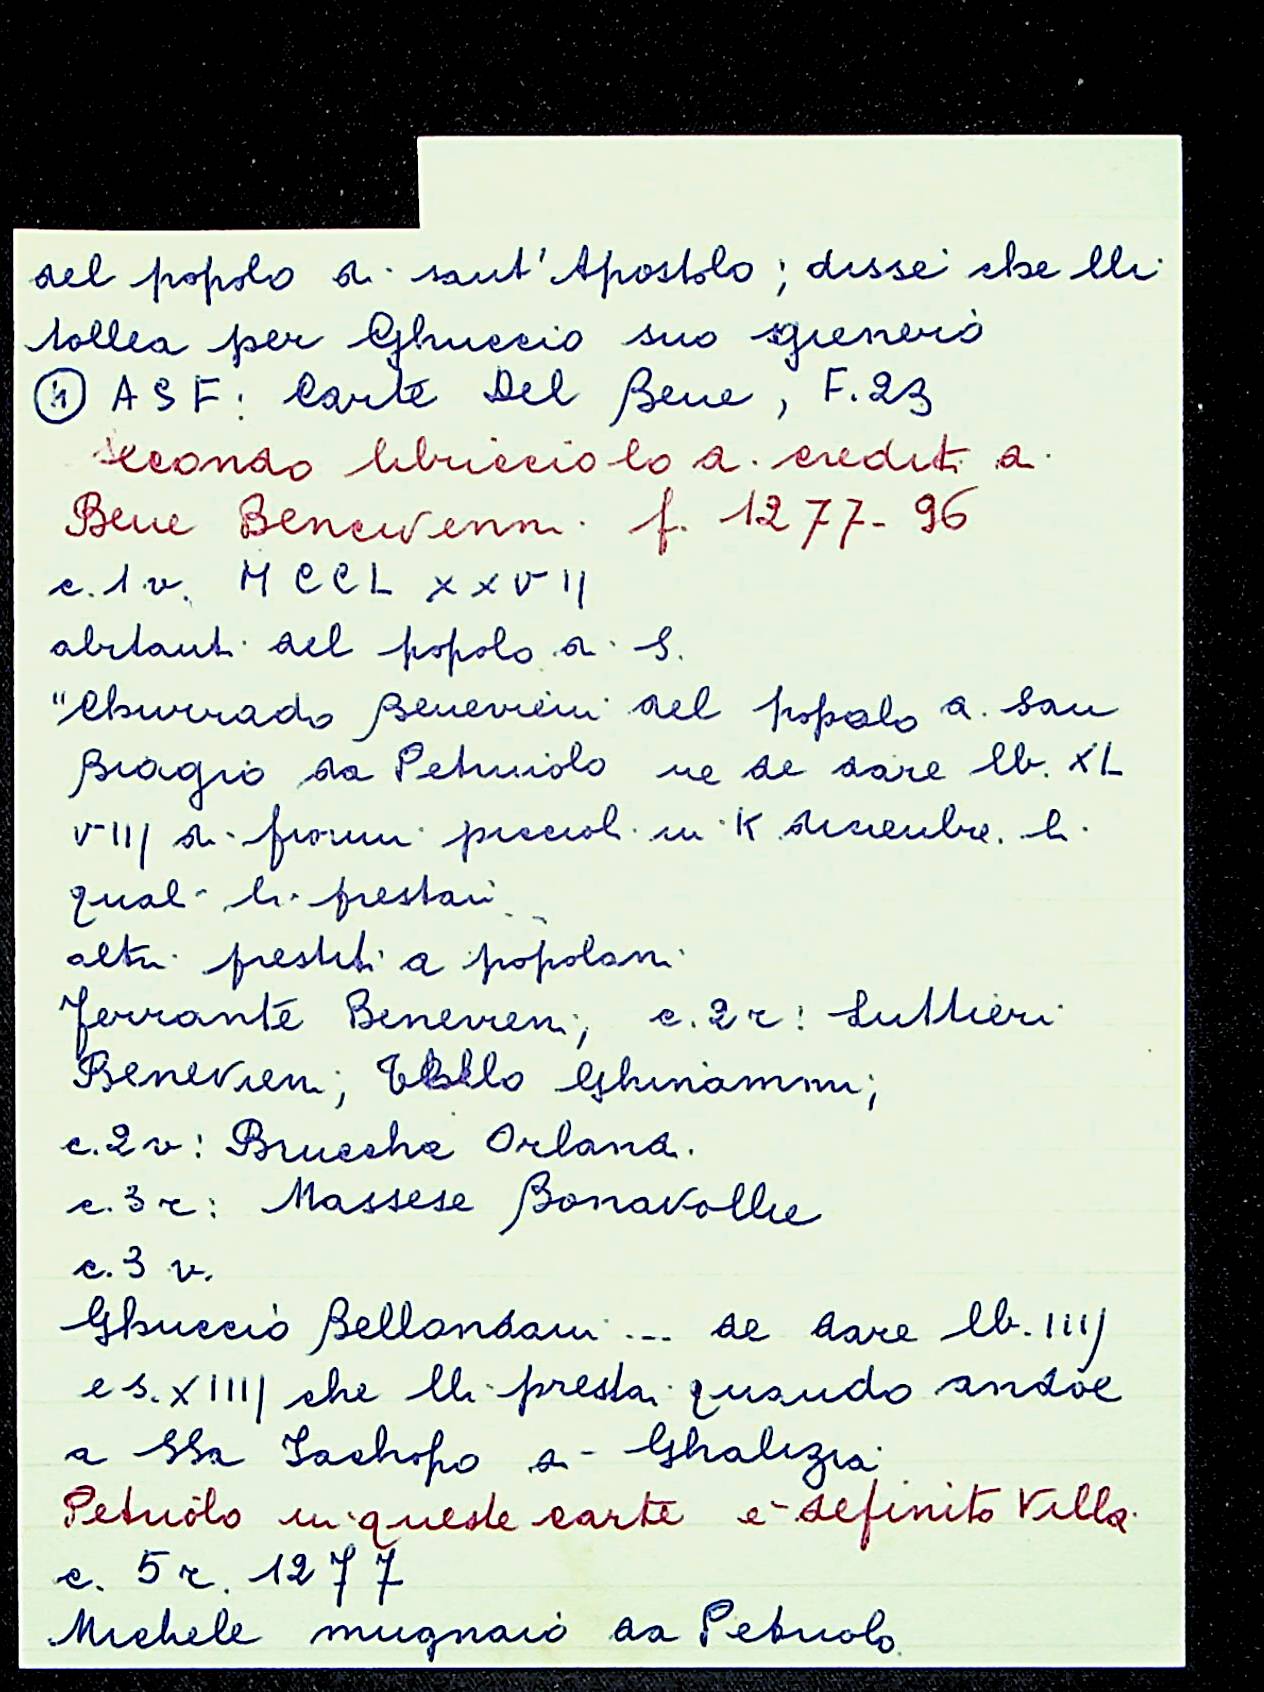 del popolo di sant'Apostolo; disse che lli
tollea per Ghuccio suo gienero
④ ASF: Carte Del Bene, F.23
secondo libricciolo di crediti di
Bene Bencivenni f. 1277-96
c.1v. MCCLXXVII
abitanti del popolo di S.
"Churrado Benevieni del popolo di San
Biagio da Petriuolo ne de dare lb. XL
VIII di fiorini piccioli in K dicienbre. li
quali li prestai
altri prestiti a popolani
Ferrante Benevieni; c.2r: Luttieri
Benevieni; Ghinammi;
c.2v: Orlandi.
c.3r: Massese
c.3v.
Ghuccio Bellondani ... de dare lb. IIII
e s. XIIII che lli prestai quando andòe
a SSa Iachopo di Ghalizia
Petriolo in queste carte è definito Villa
c. 5r. 1277
Michele mugnaio da Petriuolo